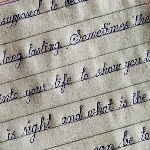 supposed to be
long lasting. Sometimes the
into your life to show you
is right and what is the
can be to